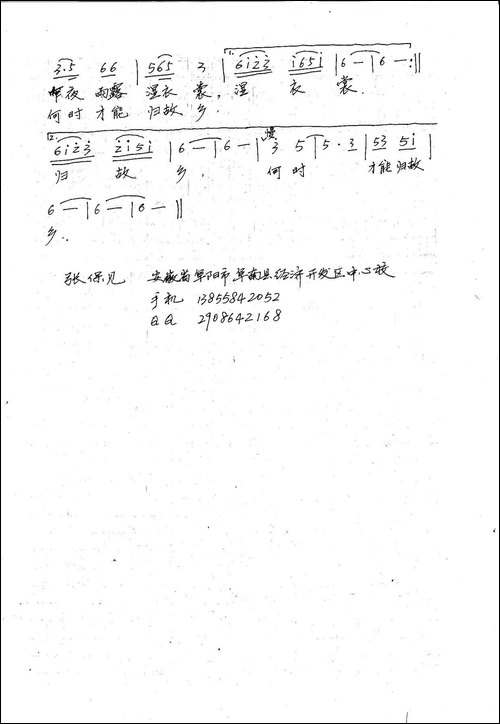 3·5 66 | 565 3 | 1. 6i23 i65i | 6 — | 6 — :‖
昨夜 雨露 湿衣 裳, 湿 衣 裳.
何时 才能 归故 乡.
2. 6i23 2i5i | 6 — | 6 — | 慢 3 5 | 5 · 3 | 53 5i |
归 故 乡. 何 时 才能 归故
6 — | 6 — | 6 — ‖
乡..
张保见 安徽省阜阳市阜南县经济开发区中心校
手机 13855842052
QQ 2908642168